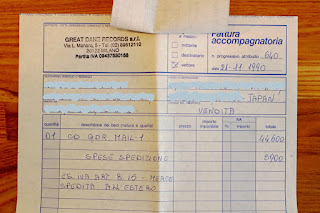 GREAT DANE RECORDS s.r.l.
Via L. Manara, 5 - Tel. (02)
20122 MILANO
Partita IVA 09437530155
Fattura
accompagnatoria
a mezzo:
mittente
destinatario
vettore
n. progressivo attribuito 640
data 21-11-1990
JAPAN
VENDITA
quantità descrizione dei beni (natura e qualità) prezzo importo imponibile IVA % imposta totale
01 CD GDR MAIL-1 44600
SPESE SPEDIZIONE 5900
ES. IVA ART 8/15 - MERCE
SPEDITA ALL'ESTERO